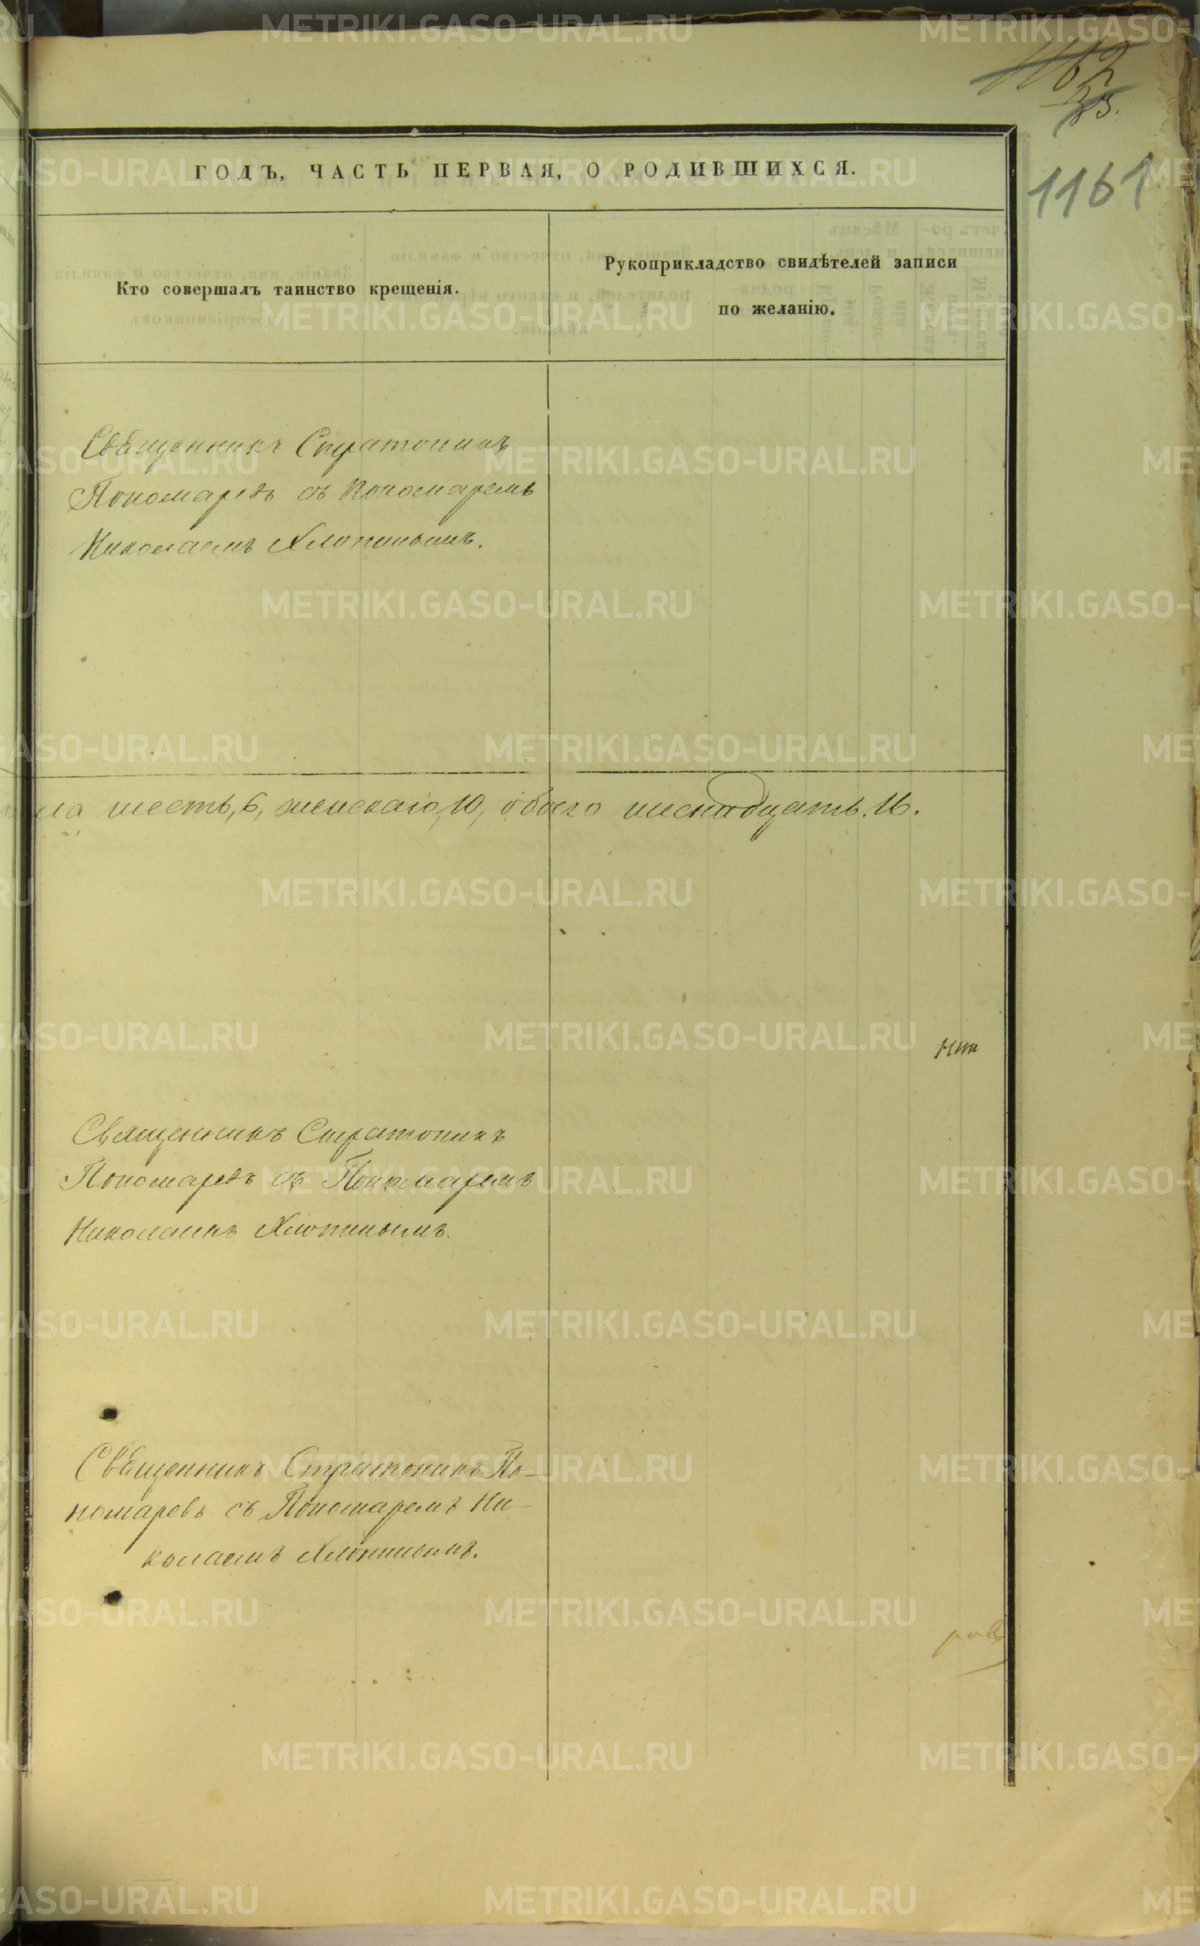 1161
ГОДЪ, ЧАСТЬ ПЕРВАЯ, О РОДИВШИХСЯ.
Кто совершалъ таинство крещенія.
Рукоприкладство свидѣтелей записи
по желанію.
Свѣщенникъ Стратоникъ
Пономаревъ съ Пономаремъ
Николаемъ Хлопинымъ.
ла шесть, 6, женскаго, 10, обоего шеснадцать. 16.
Священникъ Стратоникъ
Пономаревъ съ Пономаремъ
Николаемъ Хлопинымъ.
Свѣщенникъ Стратоникъ По-
номаревъ съ Пономаремъ Ни-
колаемъ Хлопинымъ.
METRIKI.GASO-URAL.RU